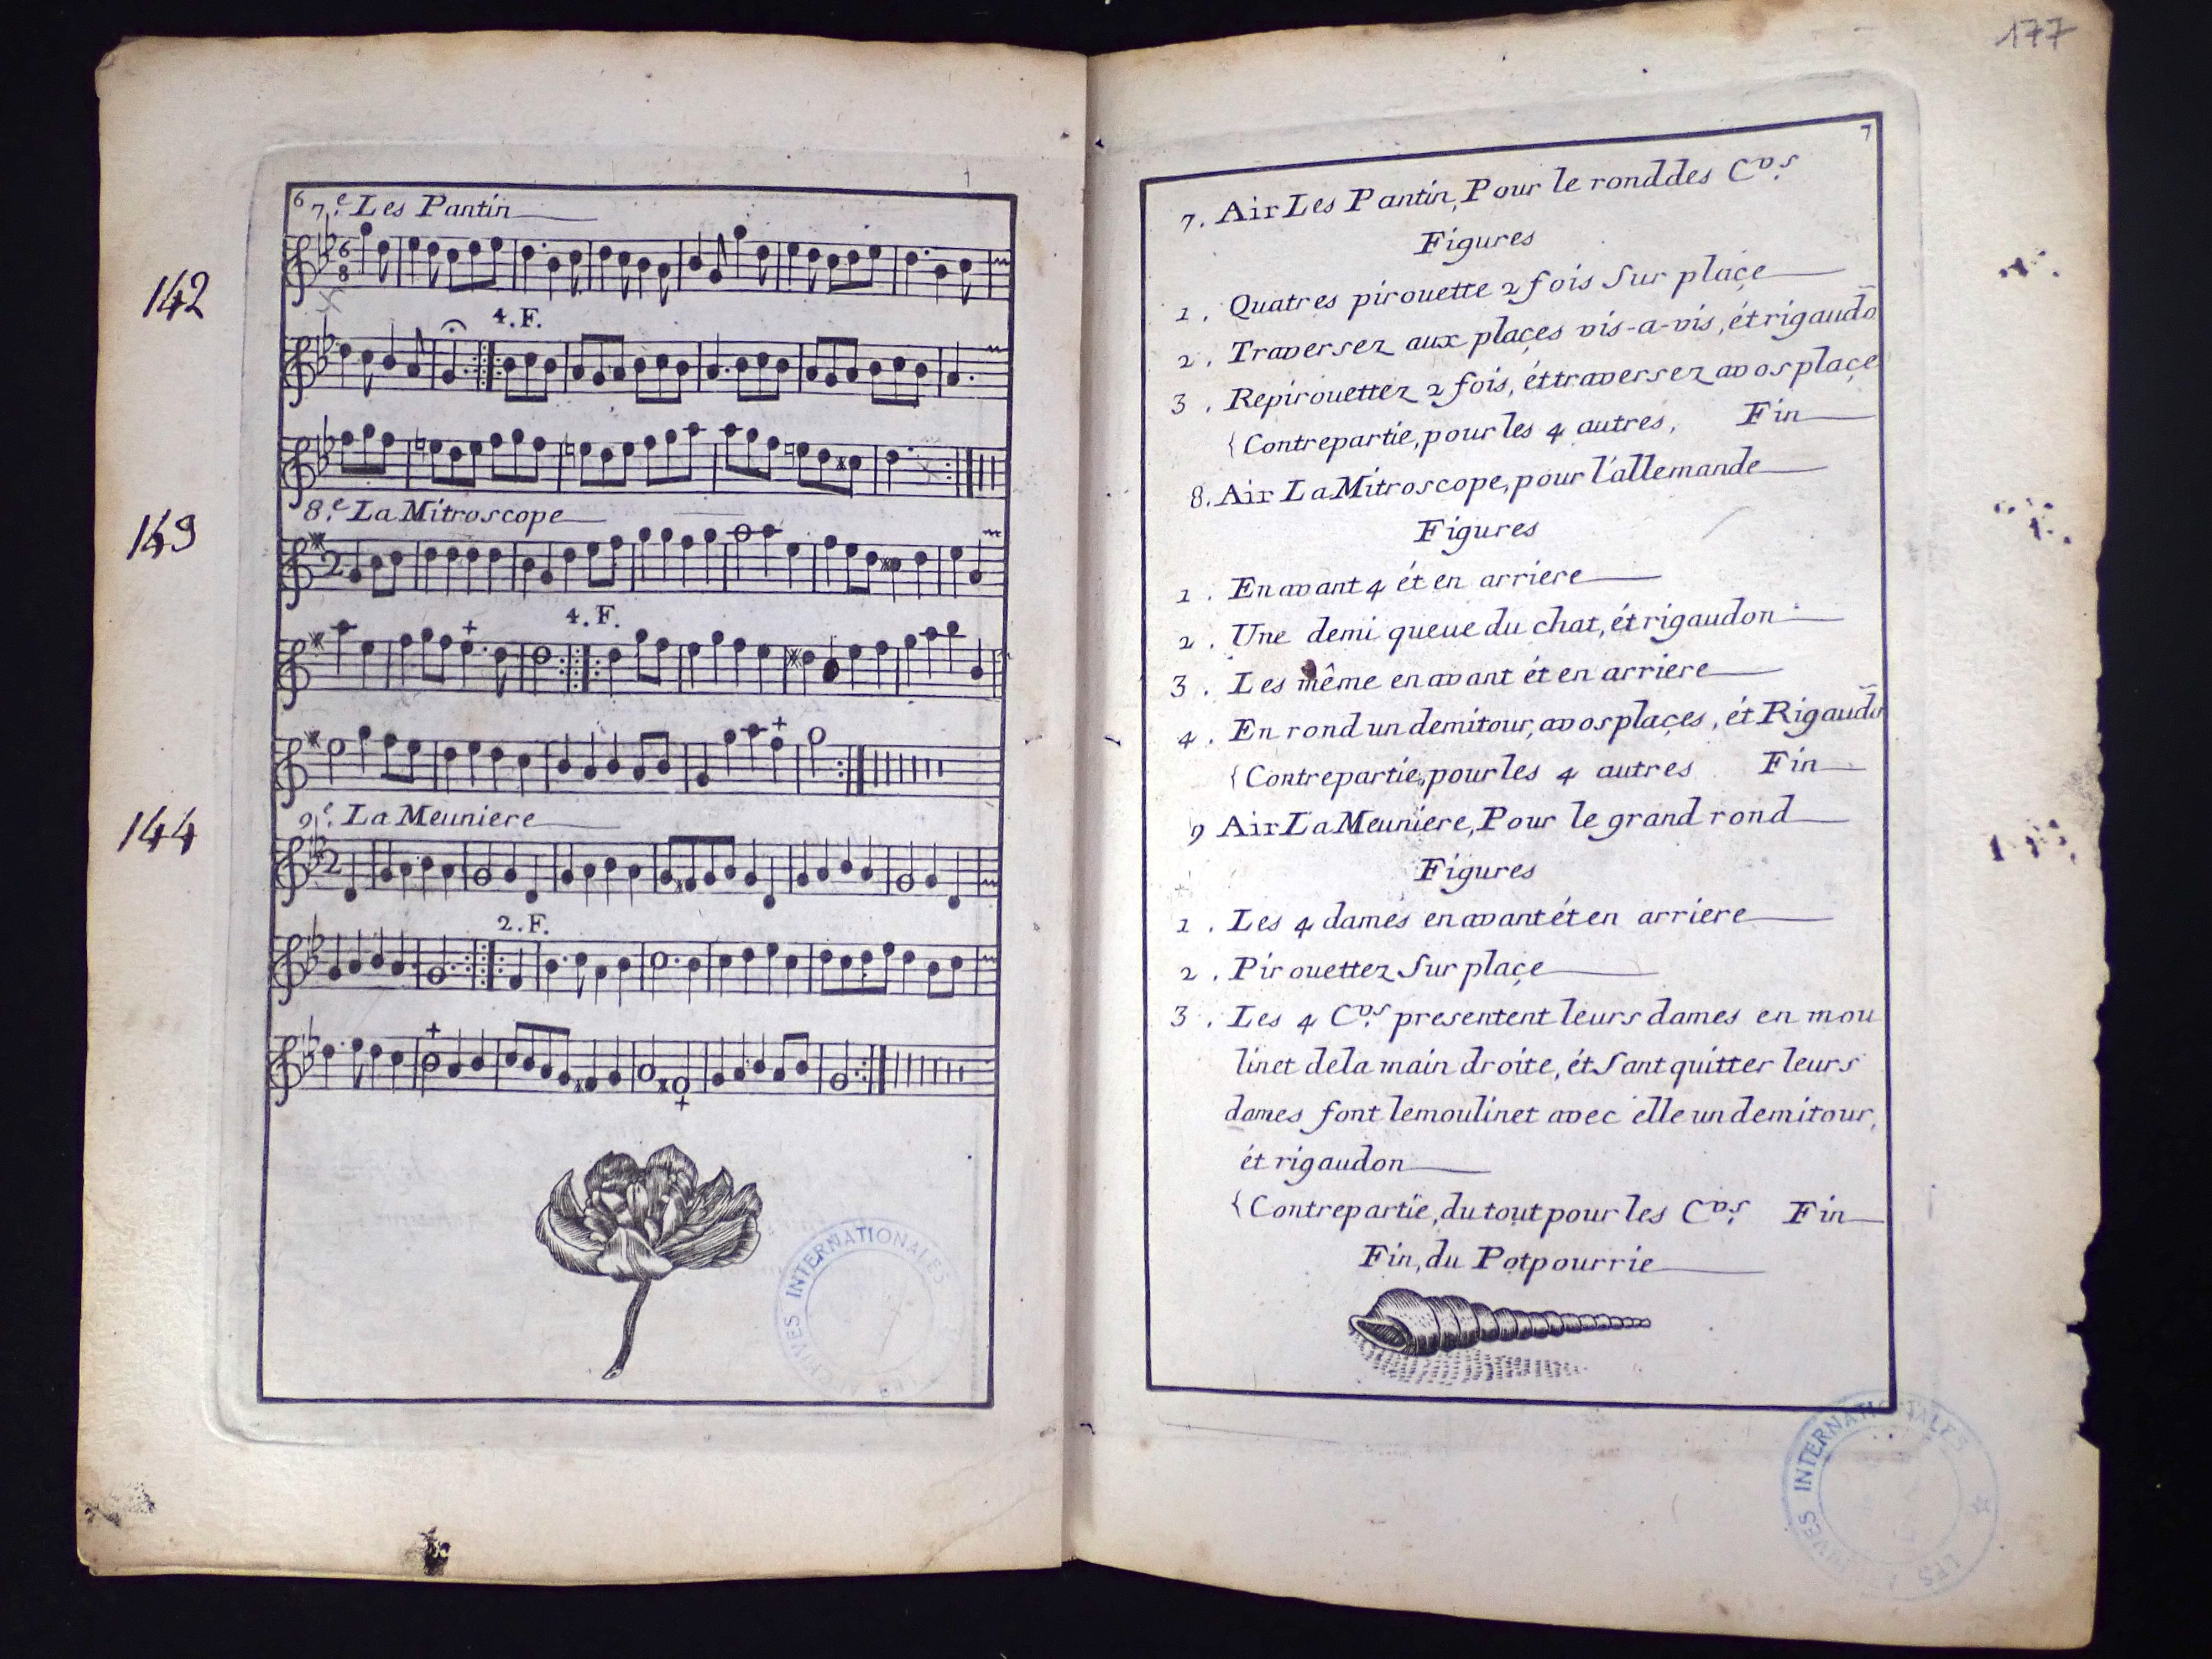 142
149
144
6
7.e Les Pantin
6
8
4.F.
8.e La Mitroscope
2
4.F.
9.e La Meuniere
2
2.F.
LES ARCHIVES INTERNATIONALES
177
7
7. Air Les Pantin, Pour le rond des Cvs.
Figures
1. Quatres pirouette 2 fois sur plaçe
2. Traversez aux plaçes vis-a-vis, ét rigaudō
3. Repirouettez 2 fois, ét traversez a vos plaçe
{Contrepartie, pour les 4 autres, Fin
8. Air La Mitroscope, pour l'allemande
Figures
1. En avant 4 ét en arriere
2. Une demi queue du chat, ét rigaudon
3. Les même en avant ét en arriere
4. En rond un demi tour, a vos plaçes, ét Rigaudō
{Contrepartie, pour les 4 autres Fin
9 Air La Meuniere, Pour le grand rond
Figures
1. Les 4 dames en avant ét en arriere
2. Pirouettez sur plaçe
3. Les 4 Cvs. presentent leurs dames en mou
linet de la main droite, ét sant quitter leurs
dames font le moulinet avec elle un demi tour,
ét rigaudon
{Contrepartie, du tout pour les Cvs. Fin
Fin, du Potpourrie
LES ARCHIVES INTERNATIONALES